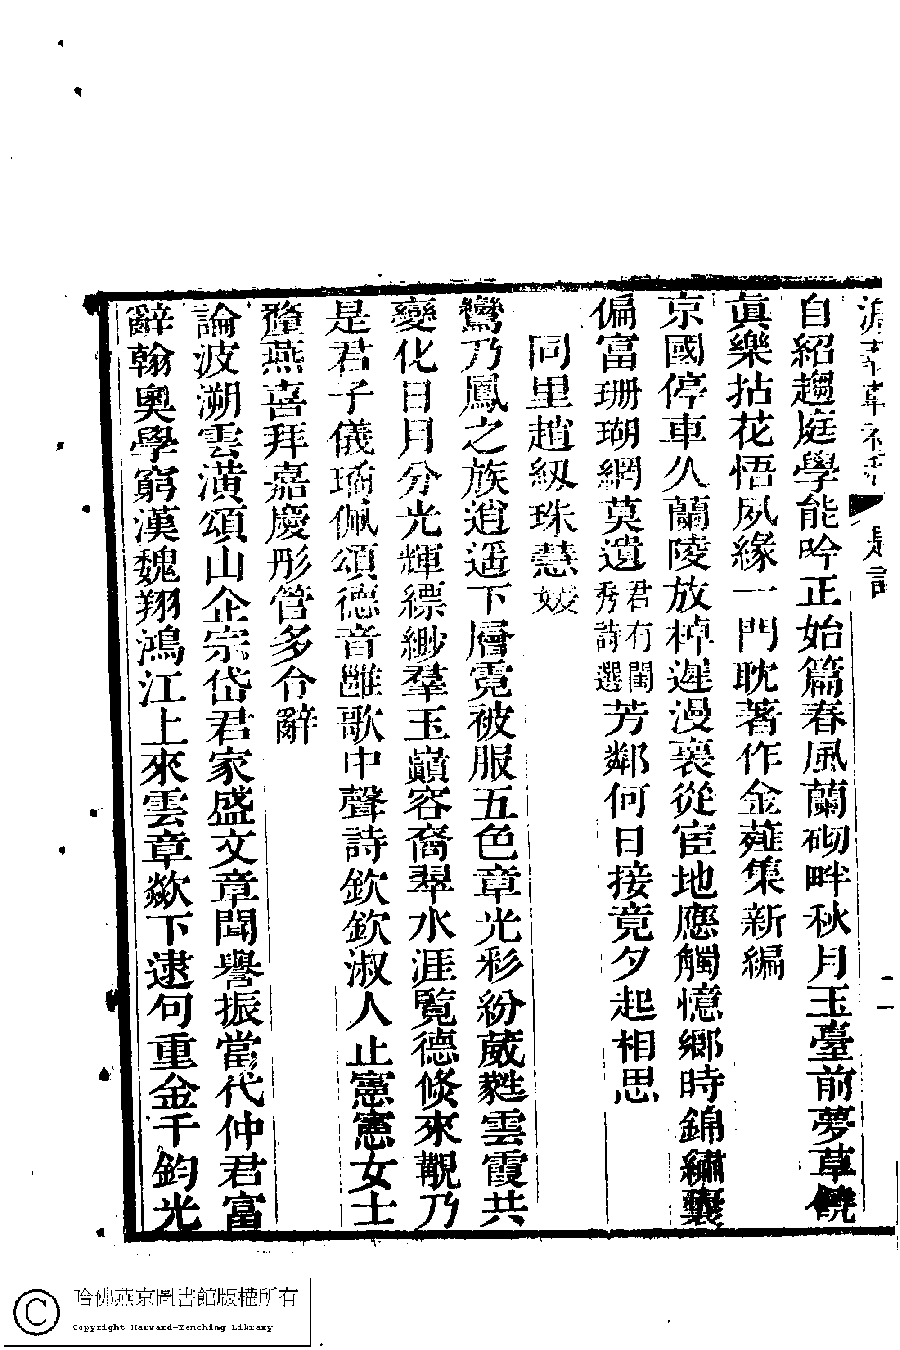 自紹趨庭學能吟正始篇春風蘭砌畔秋月玉臺前夢草饒
眞樂拈花悟夙緣一門耽著作金薤集新編
京國停車久蘭陵放棹遲漫裏從宦地應觸憶鄉時錦繡囊
偏富珊瑚網莫遺君有閨秀詩選芳鄰何日接竟夕起相思
同里趙紉珠慧媛
鸞乃鳳之族逍遥下層霓被服五色章光彩紛葳蕤雲霞共
變化日月分光輝縹緲羣玉巔容裔翠水涯覧德倏來覯乃
是君子儀瑀佩頌德音雝歌中聲詩欽欽淑人止憲憲女士
釐燕喜拜嘉慶彤管多令辭
論波溯雲潢頌山企宗岱君家盛文章聞譽振當代仲君富
辭翰奧學窮漢魏翔鴻江上來雲章歘下逮句重金千鈞光
哈佛燕京圖書館版權所有
Copyright Harvard-Yenching Library